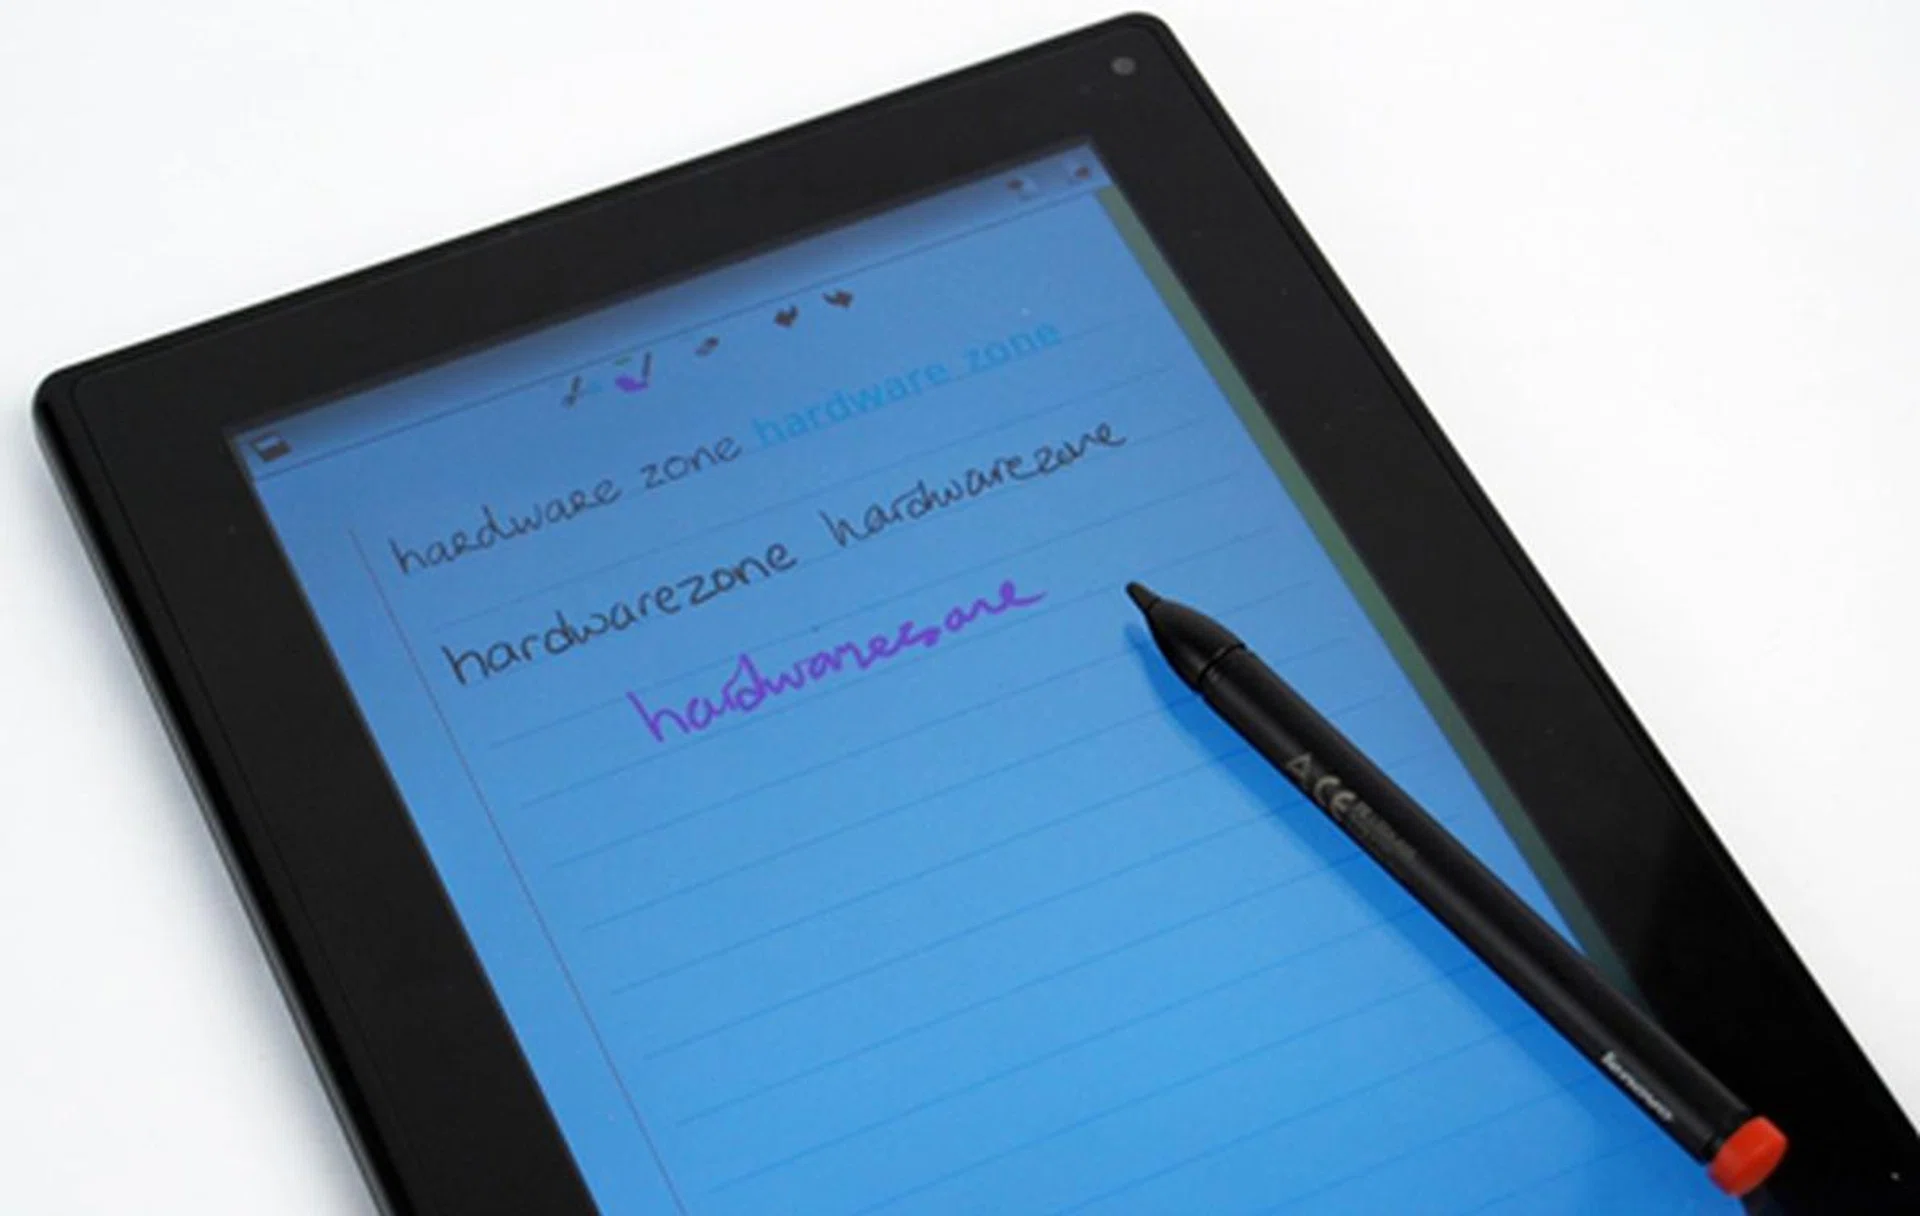 hardware zone hardware zone
hardwarezone hardwarezone
hardwarezone
CE
lenovo